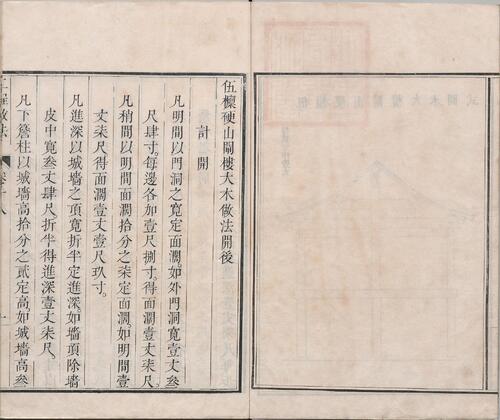 伍檁硬山閘樓大木做法開後
計開
凡明間以門洞之寬定面濶。如外門洞寬壹丈叁
尺肆寸。每邊各加壹尺捌寸。得面濶壹丈柒尺。
凡稍間以明間面濶拾分之柒定面濶。如明間壹
丈柒尺。得面濶壹丈壹尺玖寸。
凡進深以城墻之頂寬折半定進深。如墻頂除墻
皮中寬叁丈肆尺。折半得進深壹丈柒尺。
凡下簷柱以城墻高拾分之貳定高。如城墻高叁
工程做法
卷十八
一